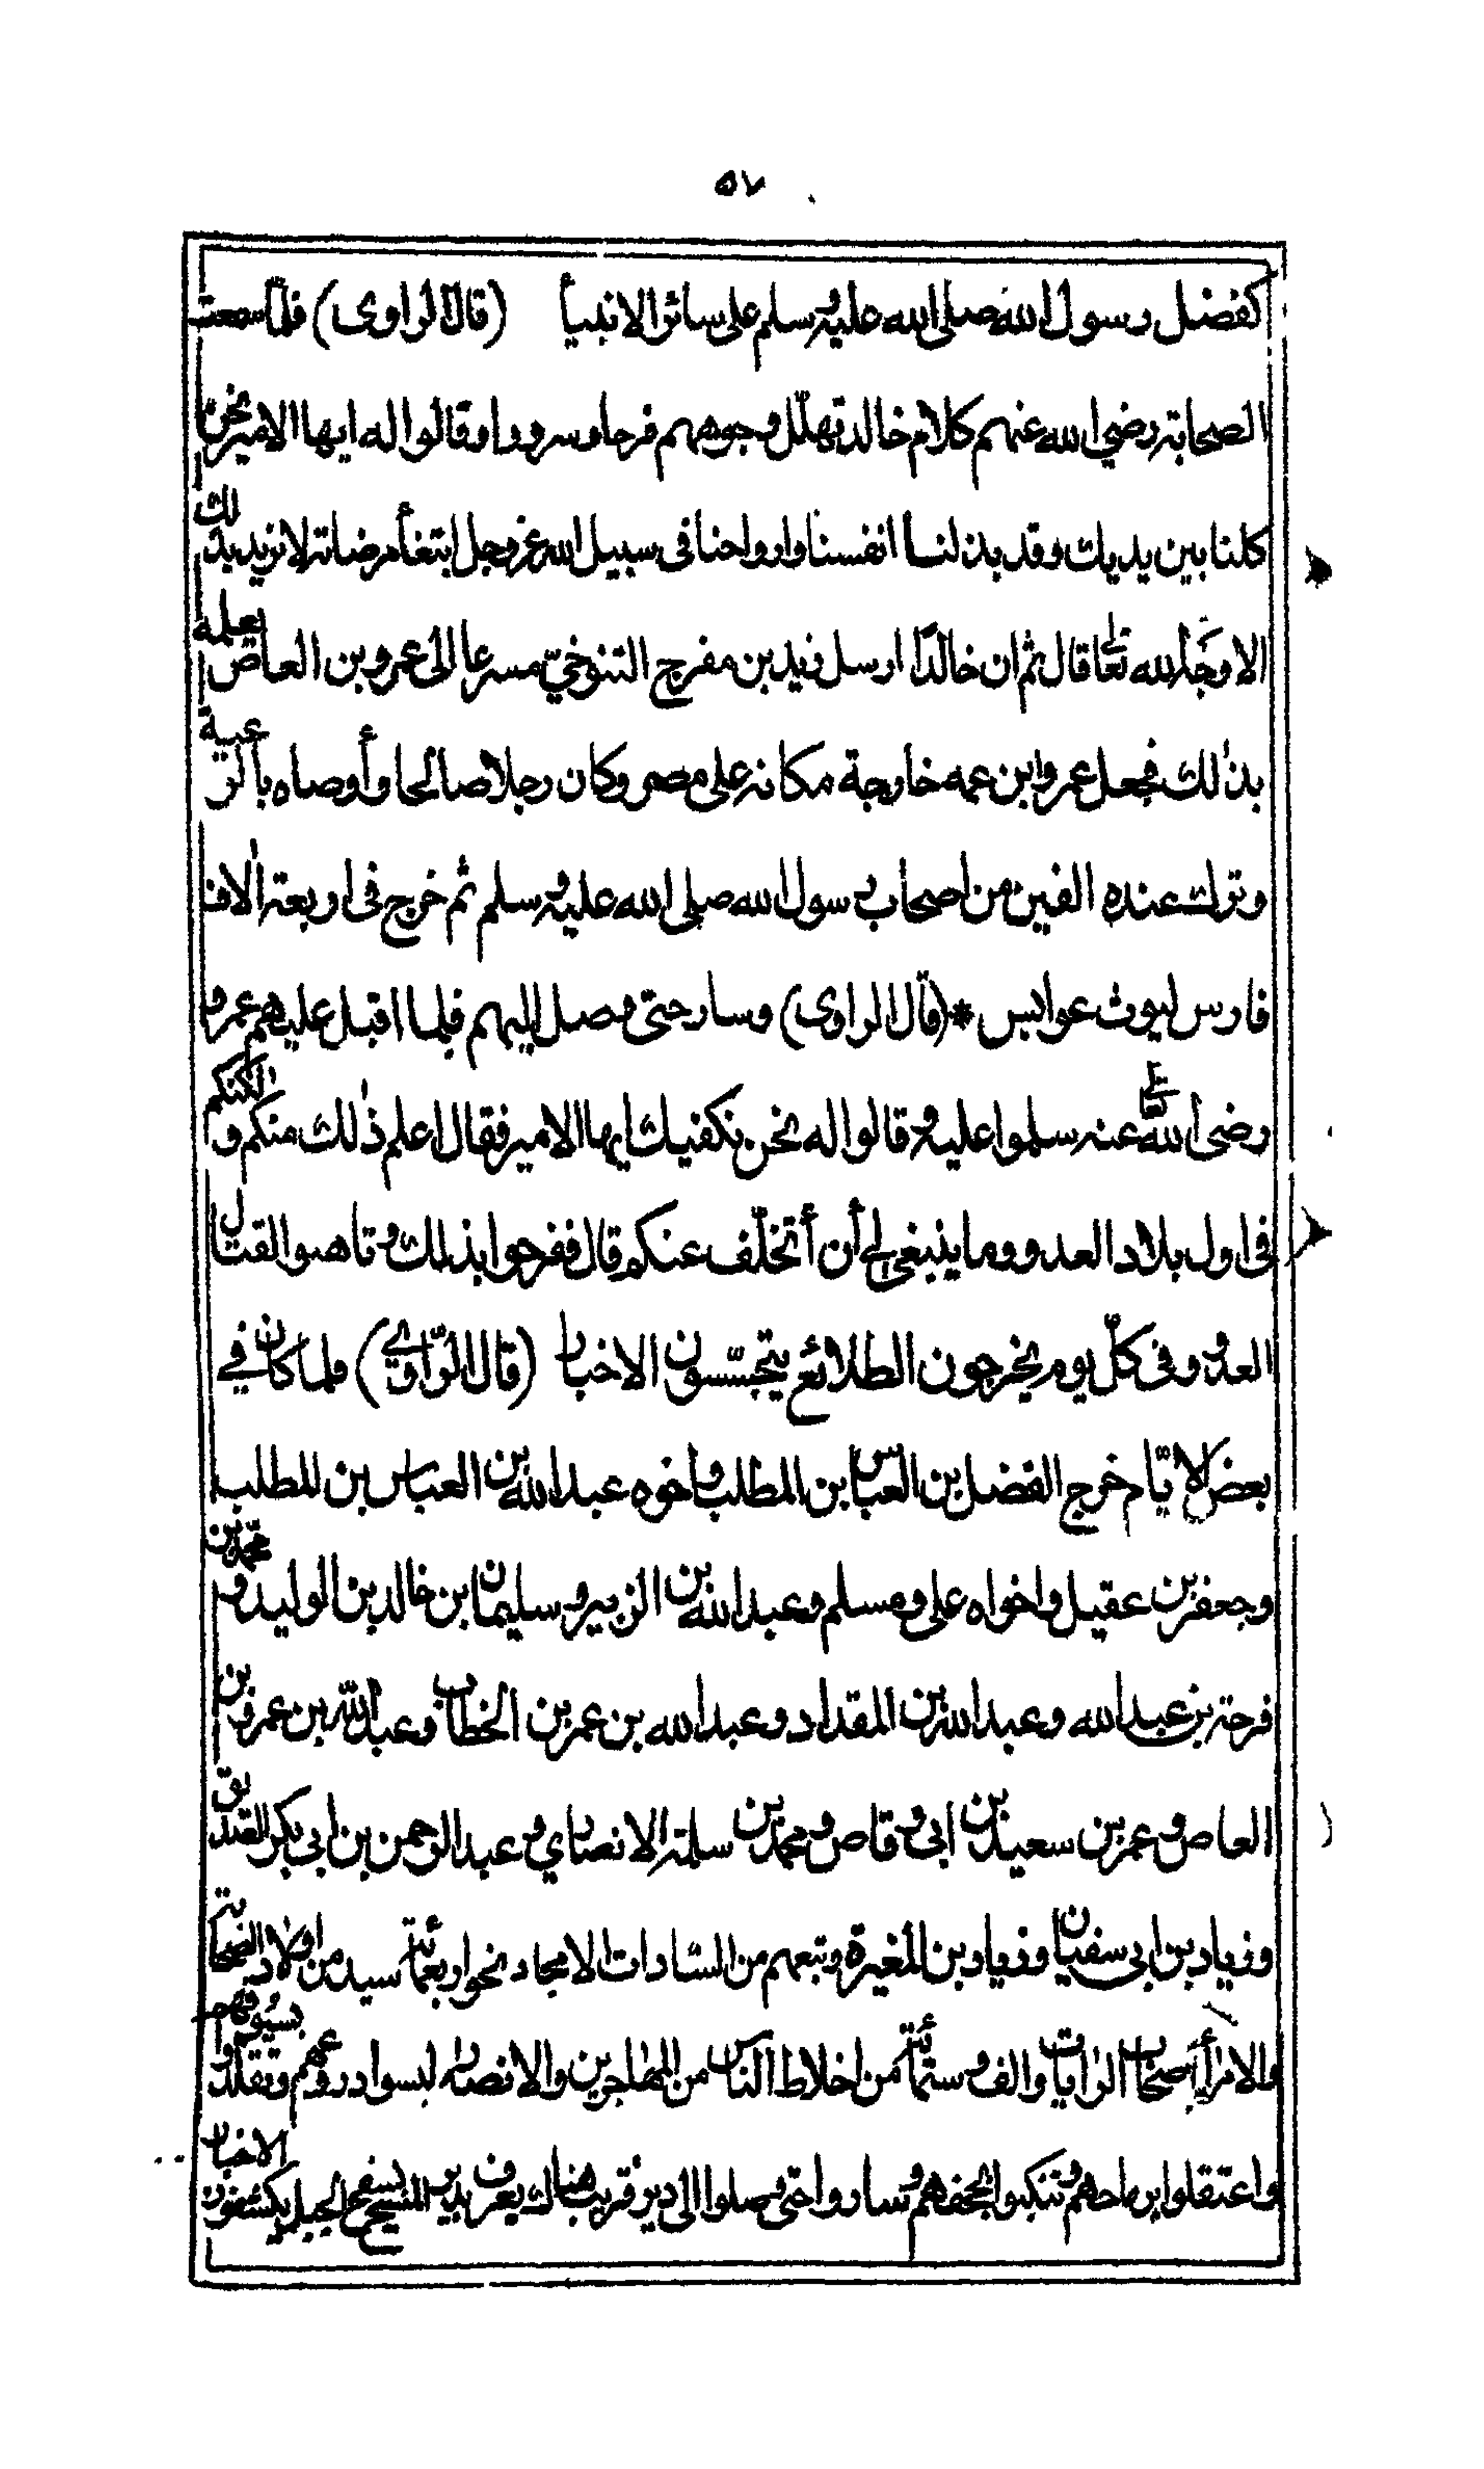 ٥٧
كفضل رسول الله صلى الله عليه وسلم على سائر الانبيأ (قال الراوى) فلمّا سمعت
الصحابة رضي الله عنهم كلام خالد تهلّل وجوههم فرحا وسرورا وقالوا له ايها الامير نحن
كلنا بين يديك وقد بذلنا انفسنا وارواحنا فى سبيل الله عز وجل ابتغأ مرضاته لا نريد بذلك
الا وجه الله تعالى قال ثم ان خالدًا ارسل زيد بن مفرج التنوخيّ مسرعا الى عمرو بن العاص يعلمه
بذلك فجعل عمرو ابن عمه خارجة مكانه على مصر وكان رجلا صالحا وأوصاه بالرعية
وترك عنده الفين من اصحاب رسول الله صلى الله عليه وسلم ثم خرج فى اربعة الاف
فارس ليوث عوابس * (قال الراوى) وسار حتى وصل اليهم فلما اقبل عليهم عمرو
رضى الله تعالى عنه سلموا عليه وقالوا له نحن نكفيك ايها الامير فقال اعلم ذلك منكم ولكنكم
فى اول بلاد العدو وما ينبغى لي أن أتخلّف عنكم قال ففرحوا بذلك وتاهبوا لقتال
العدو وفى كلّ يوم يخرجون الطلائع يتجسّسون الاخبار (قال الرّاوي) فلما كان في
بعض الايّام خرج الفضل بن العباس ابن المطلب واخوه عبد الله بن العباس بن المطلب
وجعفر بن عقيل واخواه على ومسلم وعبد الله بن الزبير وسليمان ابن خالد بن الوليد ومحمد بن
فرحة بن عبد الله وعبد الله بن المقداد وعبد الله بن عمر بن الخطاب وعبد الله بن عمرو بن
العاص وعمر بن سعيد بن ابى وقاص ومحمد بن سلمة الانصاري وعبد الرحمن بن ابى بكر الصديق
وزياد بن ابى سفيان وزياد بن المغيرة وتبعهم من السادات الامجاد نحو اربعمائة سيد من اولاد الصحابة
والامرأ اصحاب الرايات والف وستمائة من اخلاط الناس من المهاجرين والانصار لبسوا دروعهم وتقلدوا بسيوفهم
واعتقلوا برماحهم وتنكبوا بحجفهم وساروا حتى وصلوا الى دير قريب هناك يعرف بدير المسيح بسفح الجبل يكشفون الاخبار